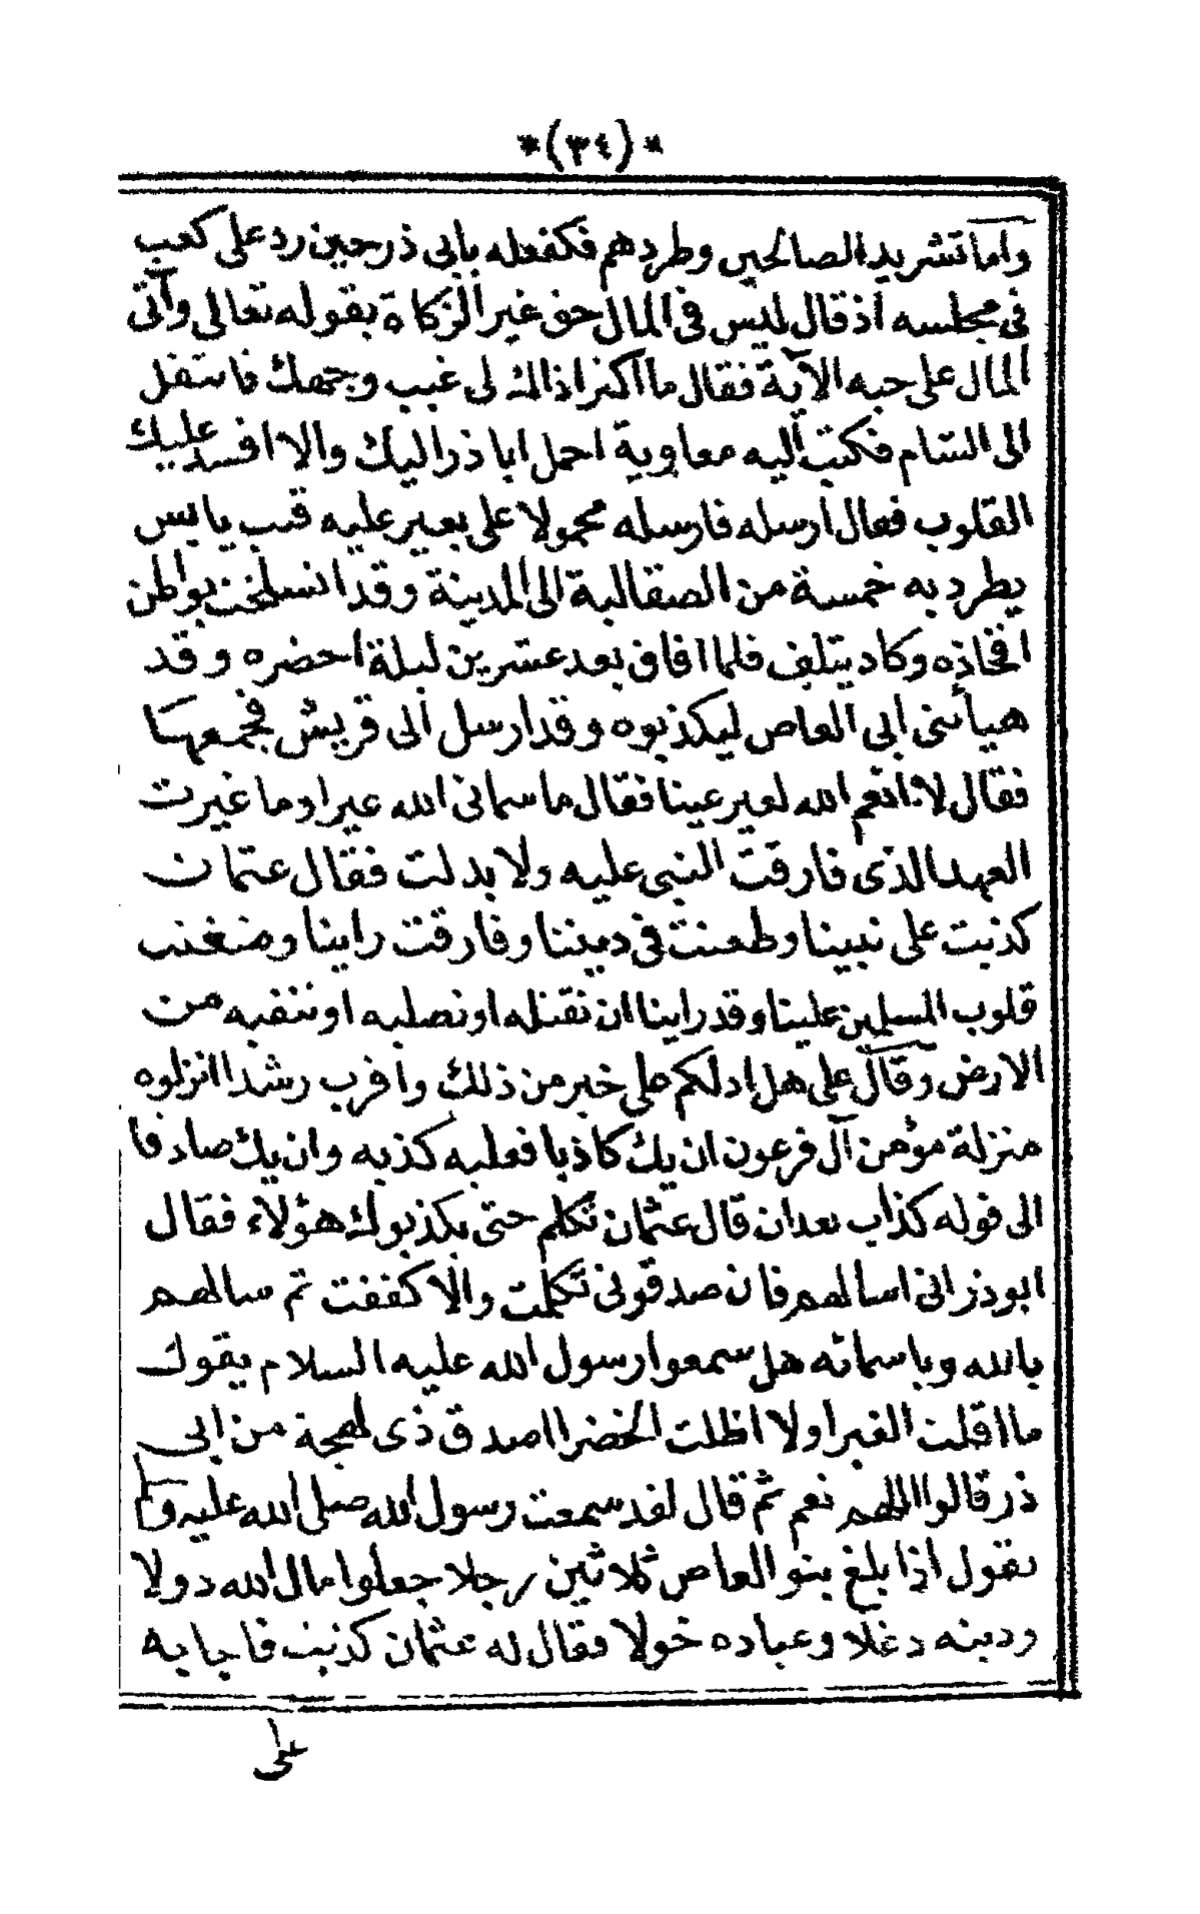 *(٣٤)*
واما تشريد الصالحين وطردهم فكفعله بابى ذر حين رد على كعب
فى مجلسه اذ قال ليس فى المال حق غير الزكاة بقوله تعالى وآتى
المال على حبه الآية فقال ما اكثر اذاك لى غيب وجهك فانتقل
الى الشام فكتب اليه معاوية احمل ابا ذر اليك والا افسد عليك
القلوب فقال ارسله فارسله محمولا على بعير عليه قتب يابس
يطرد به خمسة من الصقالبة الى المدينة وقد انسلخت بواطن
افخاذه وكاد يتلف فلما افاق بعد عشرين ليلة احضره وقد
هيأ بنى ابى العاص ليكذبوه وقد ارسل الى قريش فجمعها
فقال لا انعم الله لعير عينا فقال ما سمانى الله عيرا وما غيرت
العهد الذى فارقت النبى عليه ولا بدلت فقال عثمان
كذبت على نبينا وطعنت فى ديننا وفارقت راينا وضغنت
قلوب المسلمين علينا وقد راينا ان نقتله او نصلبه او ننفيه من
الارض وقال على هل ادلكم على خير من ذلك واقرب رشدا انزلوه
منزلة مؤمن آل فرعون ان يك كاذبا فعليه كذبه وان يك صادقا
الى قوله كذاب بعد ان قال عثمان تكلم حتى يكذبوك هؤلاء فقال
ابو ذر انى اسالهم فان صدقونى تكلمت والا كففت ثم سالهم
بالله وباسمائه هل سمعوا رسول الله عليه السلام يقول
ما اقلت الغبرا ولا اظلت الخضرا اصدق ذى لهجة من ابى
ذر قالوا اللهم نعم ثم قال لقد سمعت رسول الله صلى الله عليه وآله
يقول اذا بلغ بنو العاص ثلاثين رجلا جعلوا مال الله دولا
ودينه دغلا وعباده خولا فقال له عثمان كذبت فاجابه
على